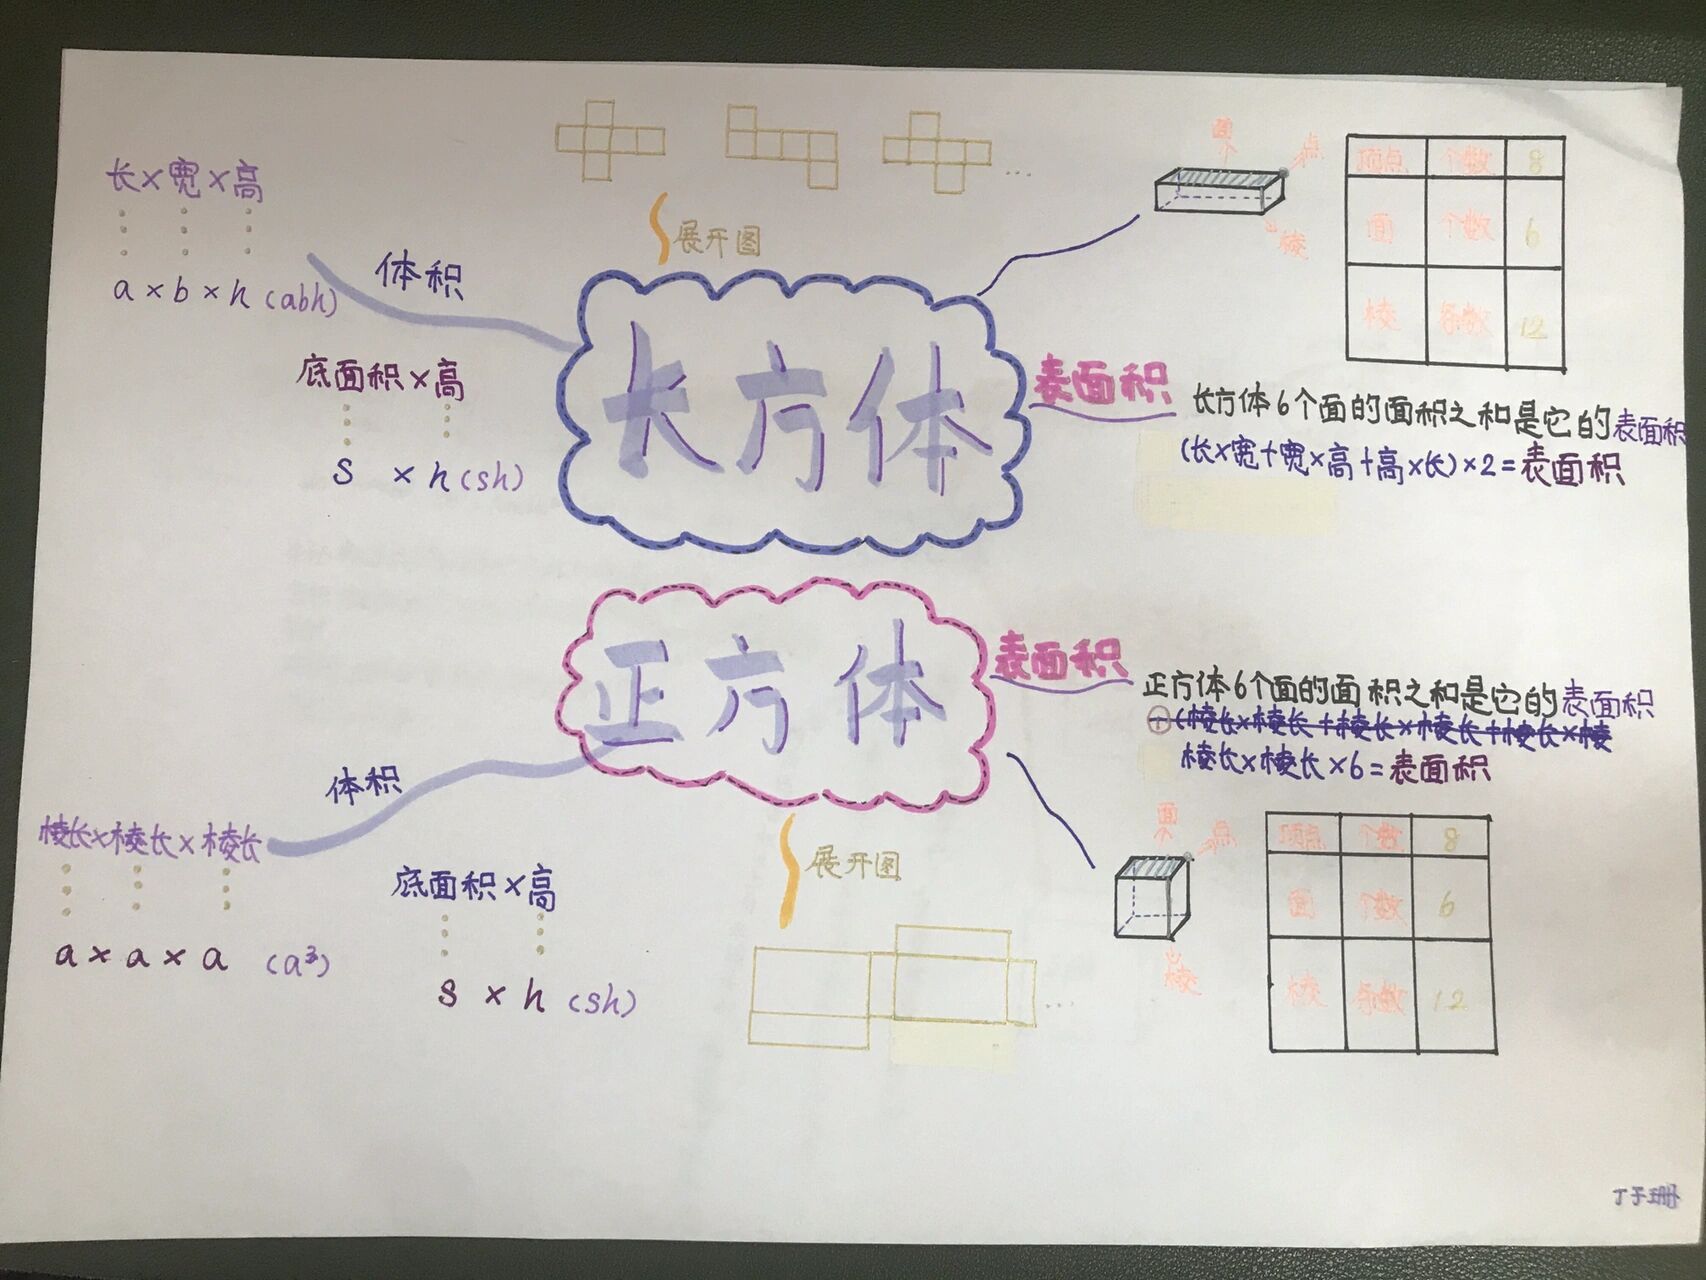 长×宽×高
a×b×h(abh)
体积
底面积×高
s×h(sh)
展开图
长方体
面
点
棱
顶点 个数 8
面 个数 6
棱 条数 12
表面积
长方体6个面的面积之和是它的表面积
(长×宽+宽×高+高×长)×2=表面积
正方体
表面积
正方体6个面的面积之和是它的表面积
(棱长×棱长+棱长×棱长+棱长×棱
棱长×棱长×6=表面积
体积
棱长×棱长×棱长
a×a×a (a³)
底面积×高
s×h(sh)
展开图
面
点
棱
顶点 个数 8
面 个数 6
棱 条数 12
丁子珊